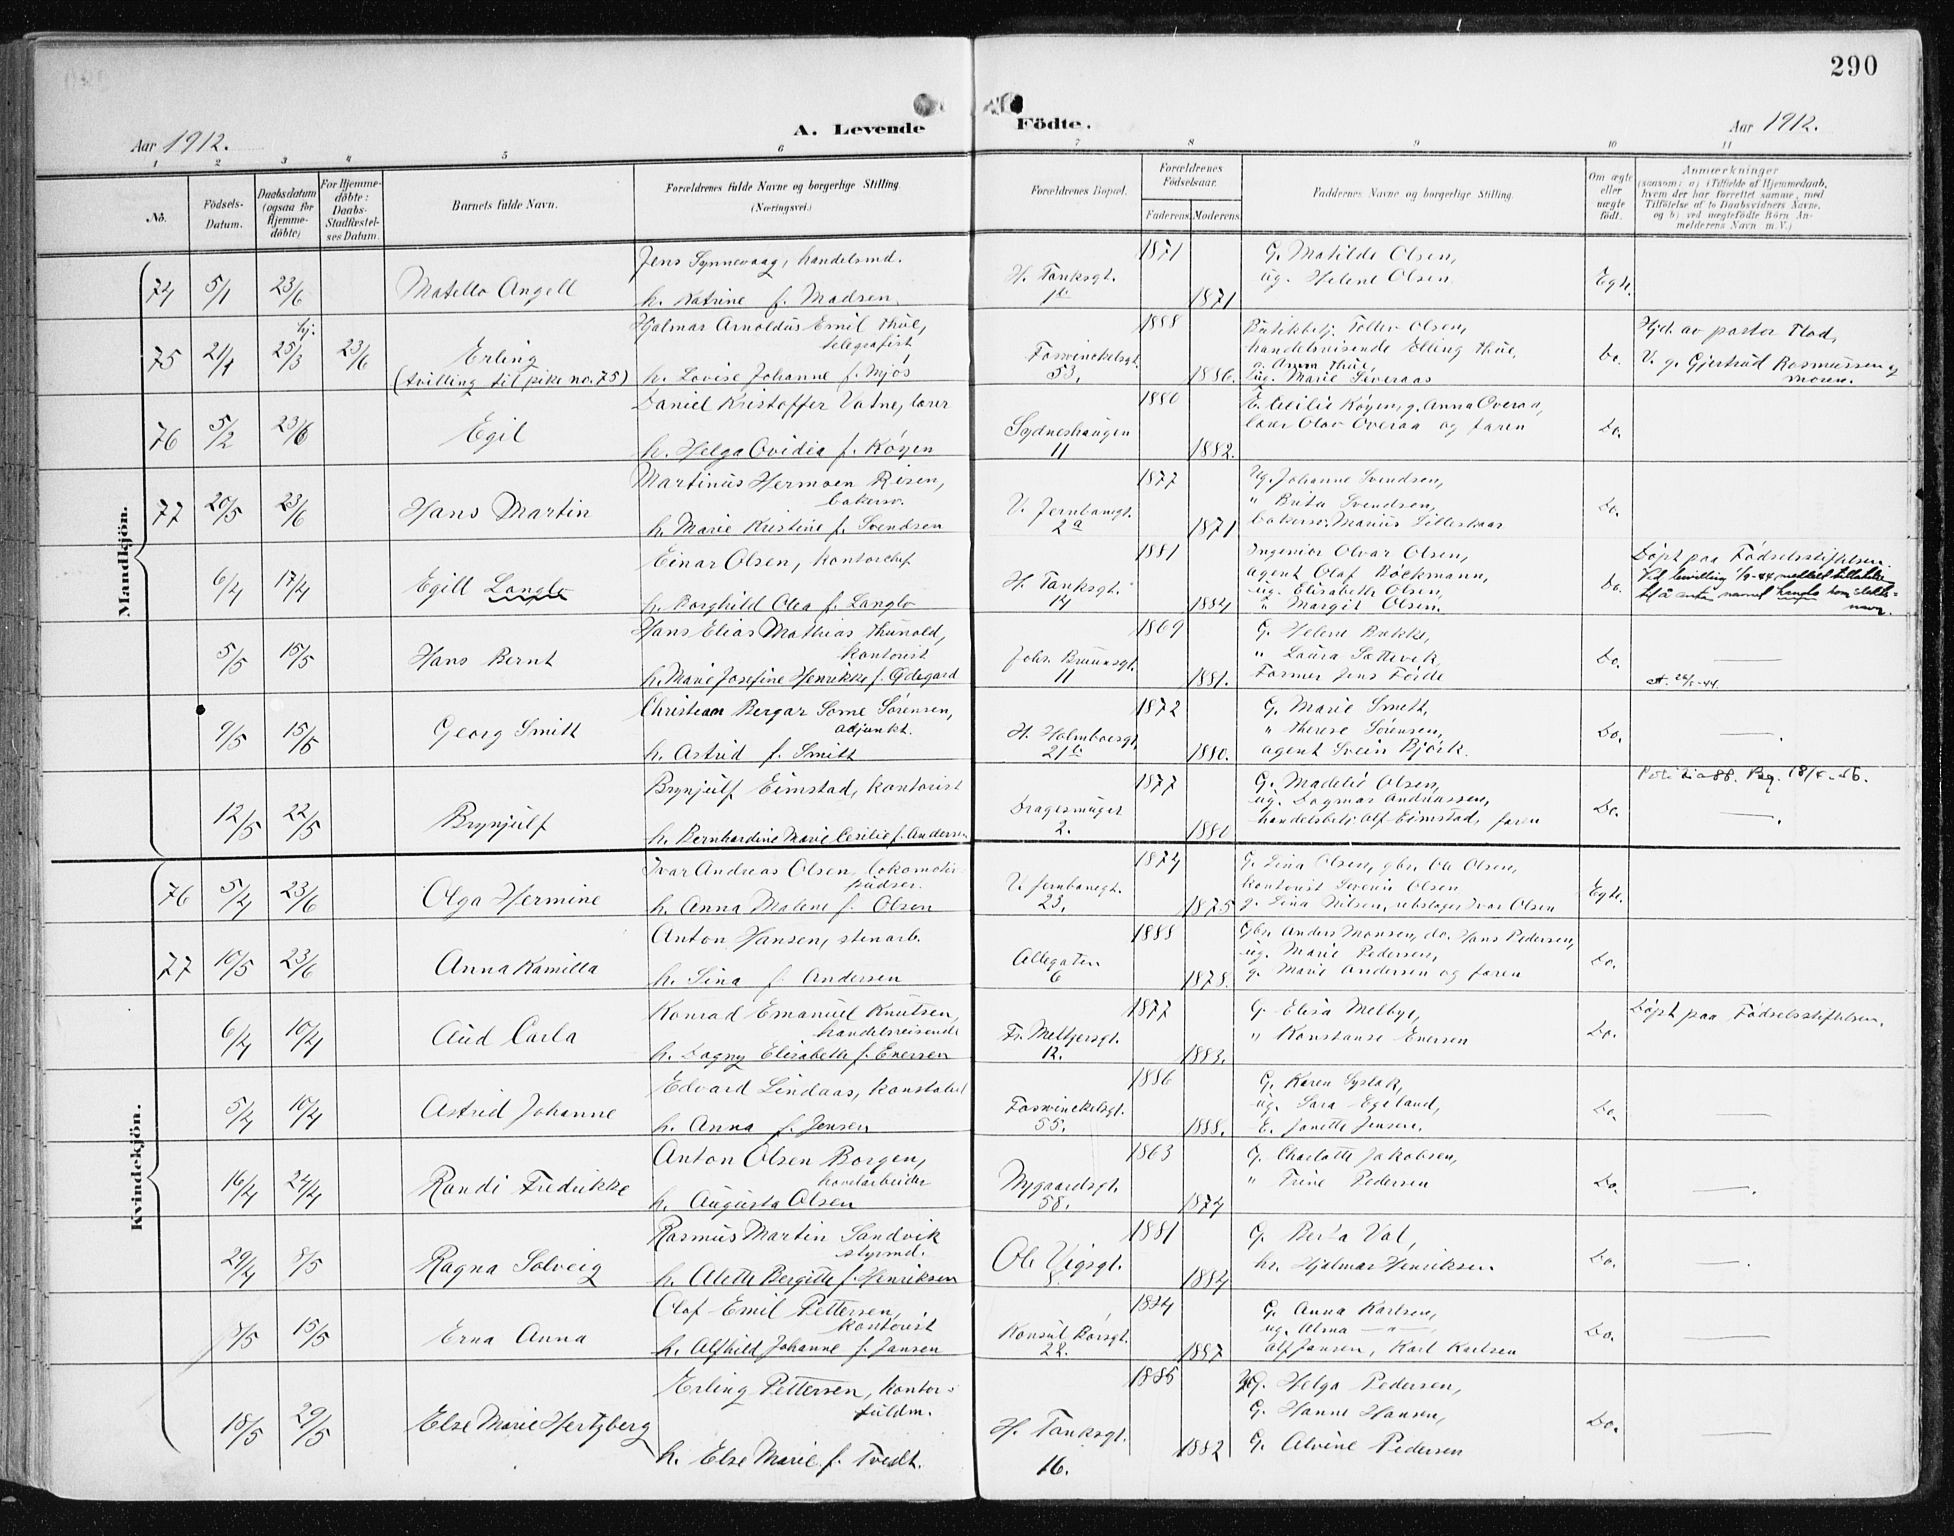 290
Aar 1912.
A. Levende Födte.
Aar 1912.
1 2 3 4 5 6 7 8 9 10 11
No.
Födsels-Datum.
Daabsdatum (ogsaa for Hjemme-döbte)
For Hjemme-döbte: Daabs-Stadfæstel-ses Datum.
Barnets fulde Navn.
Forældrenes fulde Navne og borgerlige Stilling (Næringsvei.)
Forældrenes Bopæl.
Forældrenes Födselsaar.
Faderens. Moderens.
Faddernes Navne og borgerlige Stilling.
Om ægte eller uægte födt.
Anmærkninger
(saasom: a) i Tilfælde af Hjemmedaab,
hvem der har forrettet samme, med
Tilföielse af to Daabsvidners Navne,
og b) ved uægtefödte Börn An-
melderens Navn m. V.)
Mandkjön.
74 5/1 23/6 Matello Angell
Jens Synnevaag, handelsmd.
h. Katrine f. Madsen.
H. Tanksgt. 1b
1871 1871
G. Matilde Olsen,
ug. Helene Olsen
Egte.
75 21/1 hj. 25/3 23/6 Erling
(tvilling til pike no. 75)
Hjalmar Arnoldus Emil Thue,
telegrafist
h. Lovise Johanne f. Mjøs
Foswinckelsgt. 53.
1888 1886.
Butikkbetj. Tollev Olsen,
handelsreisende Elling Thue,
g. Anna Thue,
ug. Marie Siveraas
Do.
Hjd. av pastor Flod,
V. g. Gjertrud Rasmussen og
moren.
76 5/2 23/6 Egil
Daniel Kristoffer Vatne, lærer
h. Helga Ovidia f. Køyen
Sydneshaugen 11
1880 1882.
E. Cecilie Køyen, g. Anna Overaa,
lærer Olav Overaa og faren
Do.
77 20/5 23/6 Hans Martin
Martinus Hermoen Risen,
bakersv.
h. Marie Kristine f. Svendsen
V. Jernbanegt. 2a
1877 1871
Ug. Johanne Svendsen,
" Brita Svendsen,
bakersv. Marius Litleskaar
Do.
6/4 17/4 Egill Langlo
Einar Olsen, kontorchef
h. Borghild Olea f. Langlo
H. Tanksgt. 14
1881 1884
Ingeniør Olvar Olsen,
agent Olaf Böckmann,
ug. Elisabeth Olsen,
" Margit Olsen.
Do.
Døpt paa Fødselsstiftelsen.
5/5 15/5 Hans Bernt
Hans Elias Mathias Thunold,
kontorist
h. Marie Josefine Henrikke f. Ødegard
Johs. Bruunsgt. 11
1869 1881.
G. Helene Bakke,
" Laura Sættevik,
Former Jens Førde
Do.
9/5 15/5 Georg Smith
Christian Bergar Some Sørensen,
adjunkt.
h. Astrid f. Smith
H. Holmboesgt. 21b
1872 1880.
G. Marie Smith,
" Therese Sørensen,
agent Svein Bjørk.
Do.
12/5 22/5 Brynjulf
Brynjulf Eimstad, kontorist
h. Bernhardine Marie Cecilie f. Andersen
Dragesmuget 2.
1877 1880
G. Madelie Olsen,
ug. Dagmar Andreassen,
handelsbetj. Alf Eimstad, faren
Do.
Kvindekjön.
76 5/4 23/6 Olga Hermine
Ivar Andreas Olsen, lokomotiv-
pudser.
h. Anna Malene f. Olsen
V. Jernbanegt. 23.
1874 1875
G. Lina Olsen, gbr. Ole Olsen,
kontorist Severin Olsen
g. Lina Nilsen, rebslager Ivar Olsen
Egte.
77 10/5 23/6 Anna Kamilla
Anton Hansen, stenarb.
h. Sina f. Andersen
Allegaten 6
1888 1878.
Gbr. Anders Monsen, do. Hans Pedersen,
ug. Marie Pedersen,
g. Marie Andersen og faren
Do.
6/4 10/4 Aud Carla
Konrad Emanuel Knutsen,
handelsreisende
h. Dagny Elisabeth f. Enersen
Fr. Meltzersgt. 12.
1877 1883.
G. Elisa Melbye,
" Konstanse Enersen
Do.
Døpt paa Fødselsstiftelsen.
5/4 10/4 Astrid Johanne
Edvard Lindaas, konstabel
h. Anna f. Jensen
Foswinckelsgt. 55.
1886 1888.
G. Karen Systak,
ug. Sara Egeland,
E. Janette Jensen.
Do.
16/4 24/4 Randi Fredrikke
Anton Olsen Borgen,
havnearbeider
h. Augusta Olsen
Nygaardsgt. 58.
1863 1874
G. Charlotte Jakobsen,
" Trine Pedersen
Do.
29/4 8/5 Ragna Solveig
Rasmus Martin Sandvik
styrmd.
h. Alette Bergitte f. Henriksen
Ole Vigsgt.
1881 1884
G. Berta Val,
hr. Hjalmar Henriksen
Do.
3/5 15/5 Erna Anna
Olaf Emil Pettersen,
kontorist
h. Alfhild Johanne f. Jansen
Konsul Børsgt. 22.
1884 1887
G. Anna Karlsen,
ug. Alma — " —
Alf Jansen, Karl Karlsen
Do.
18/5 29/5 Else Marie Hertzberg
Erling Pettersen, kontor-
fuldm.
h. Else Marie f. Tvedt.
H. Tanksgt. 16.
1885 1882
G. Helga Pedersen,
G. Hanne Hansen,
G. Alvine Pedersen
Do.